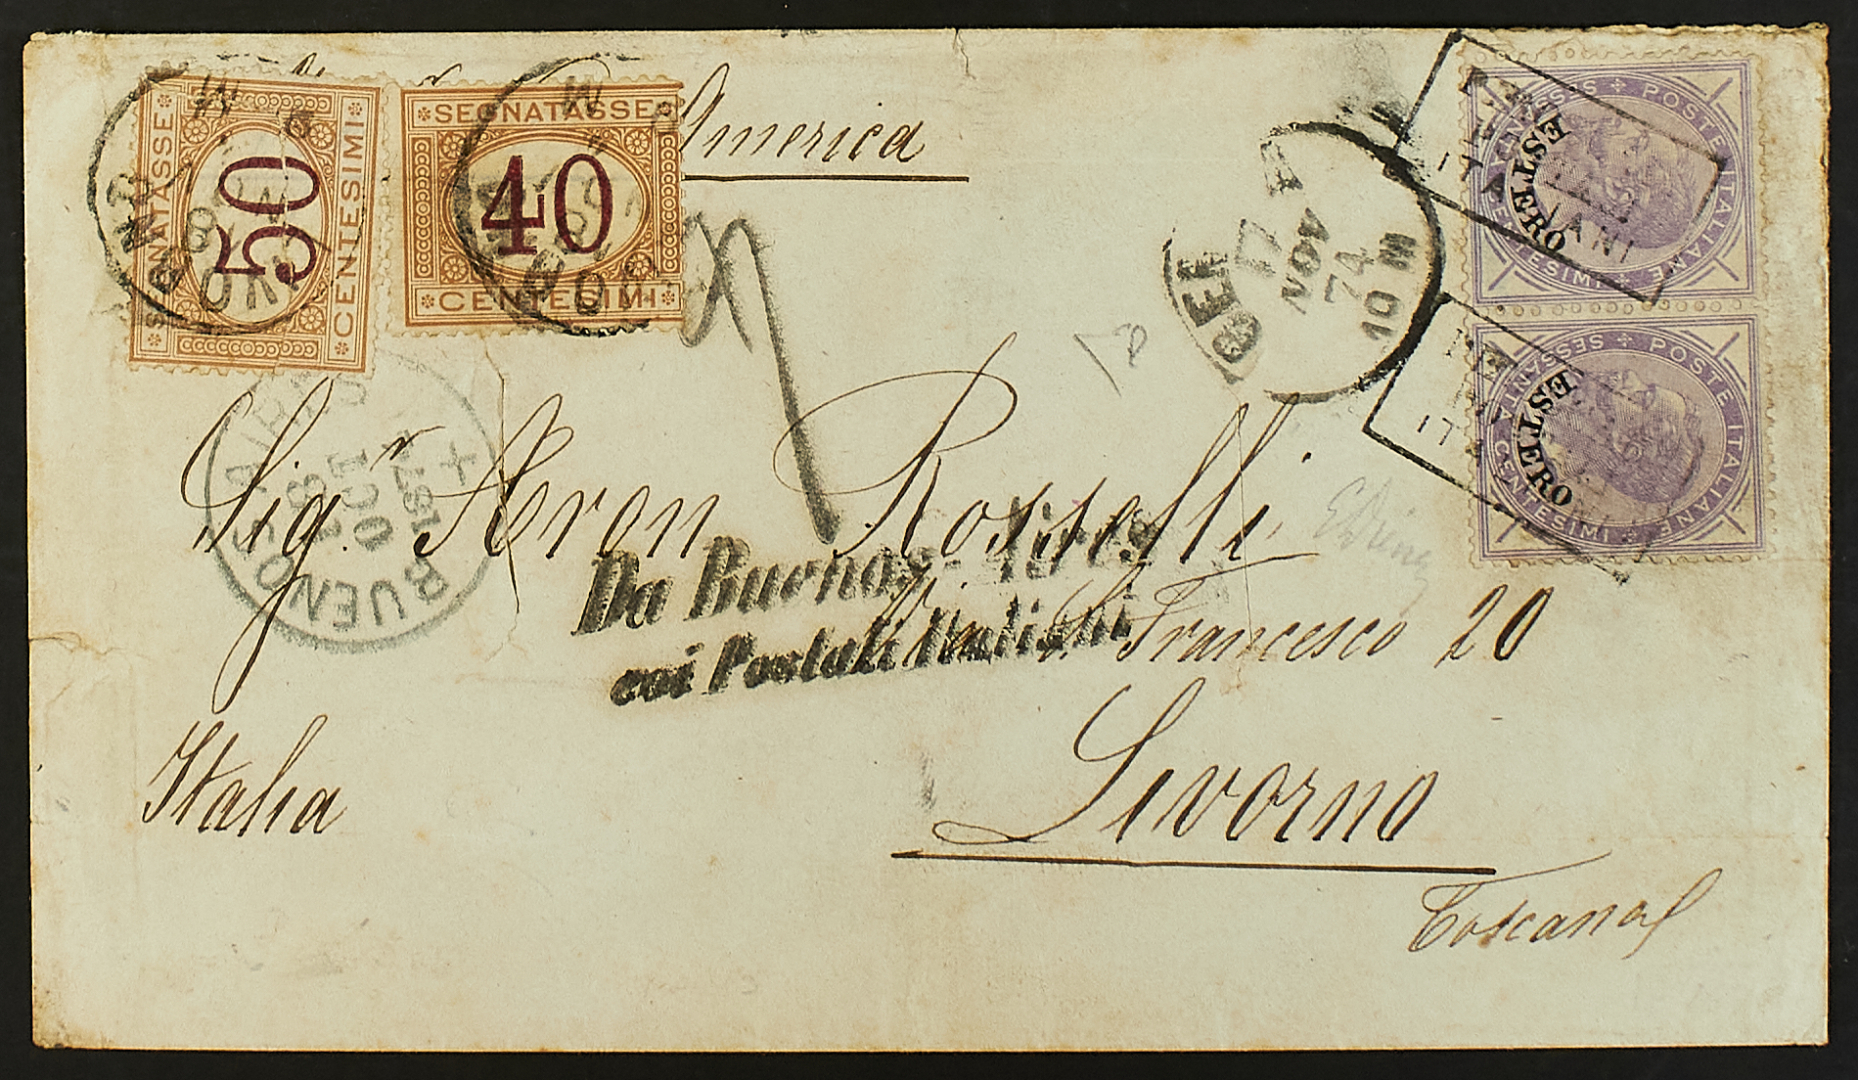 America
50
SEGNATASSE
CENTESIMI
SEGNATASSE
40
CENTESIMI
POSTE ITALIANE
CENTESIMI SESSANTA
ESTERO
POSTE ITALIANE
CENTESIMI SESSANTA
ESTERO
17
NOV
74
10 M
BUENOS AIRES
18
OCT
1874
Sig.r Aron Rosselli
Da Buenos-Aires
coi Postali Italiani
Via S. Francesco 20
Italia
Livorno
Toscana